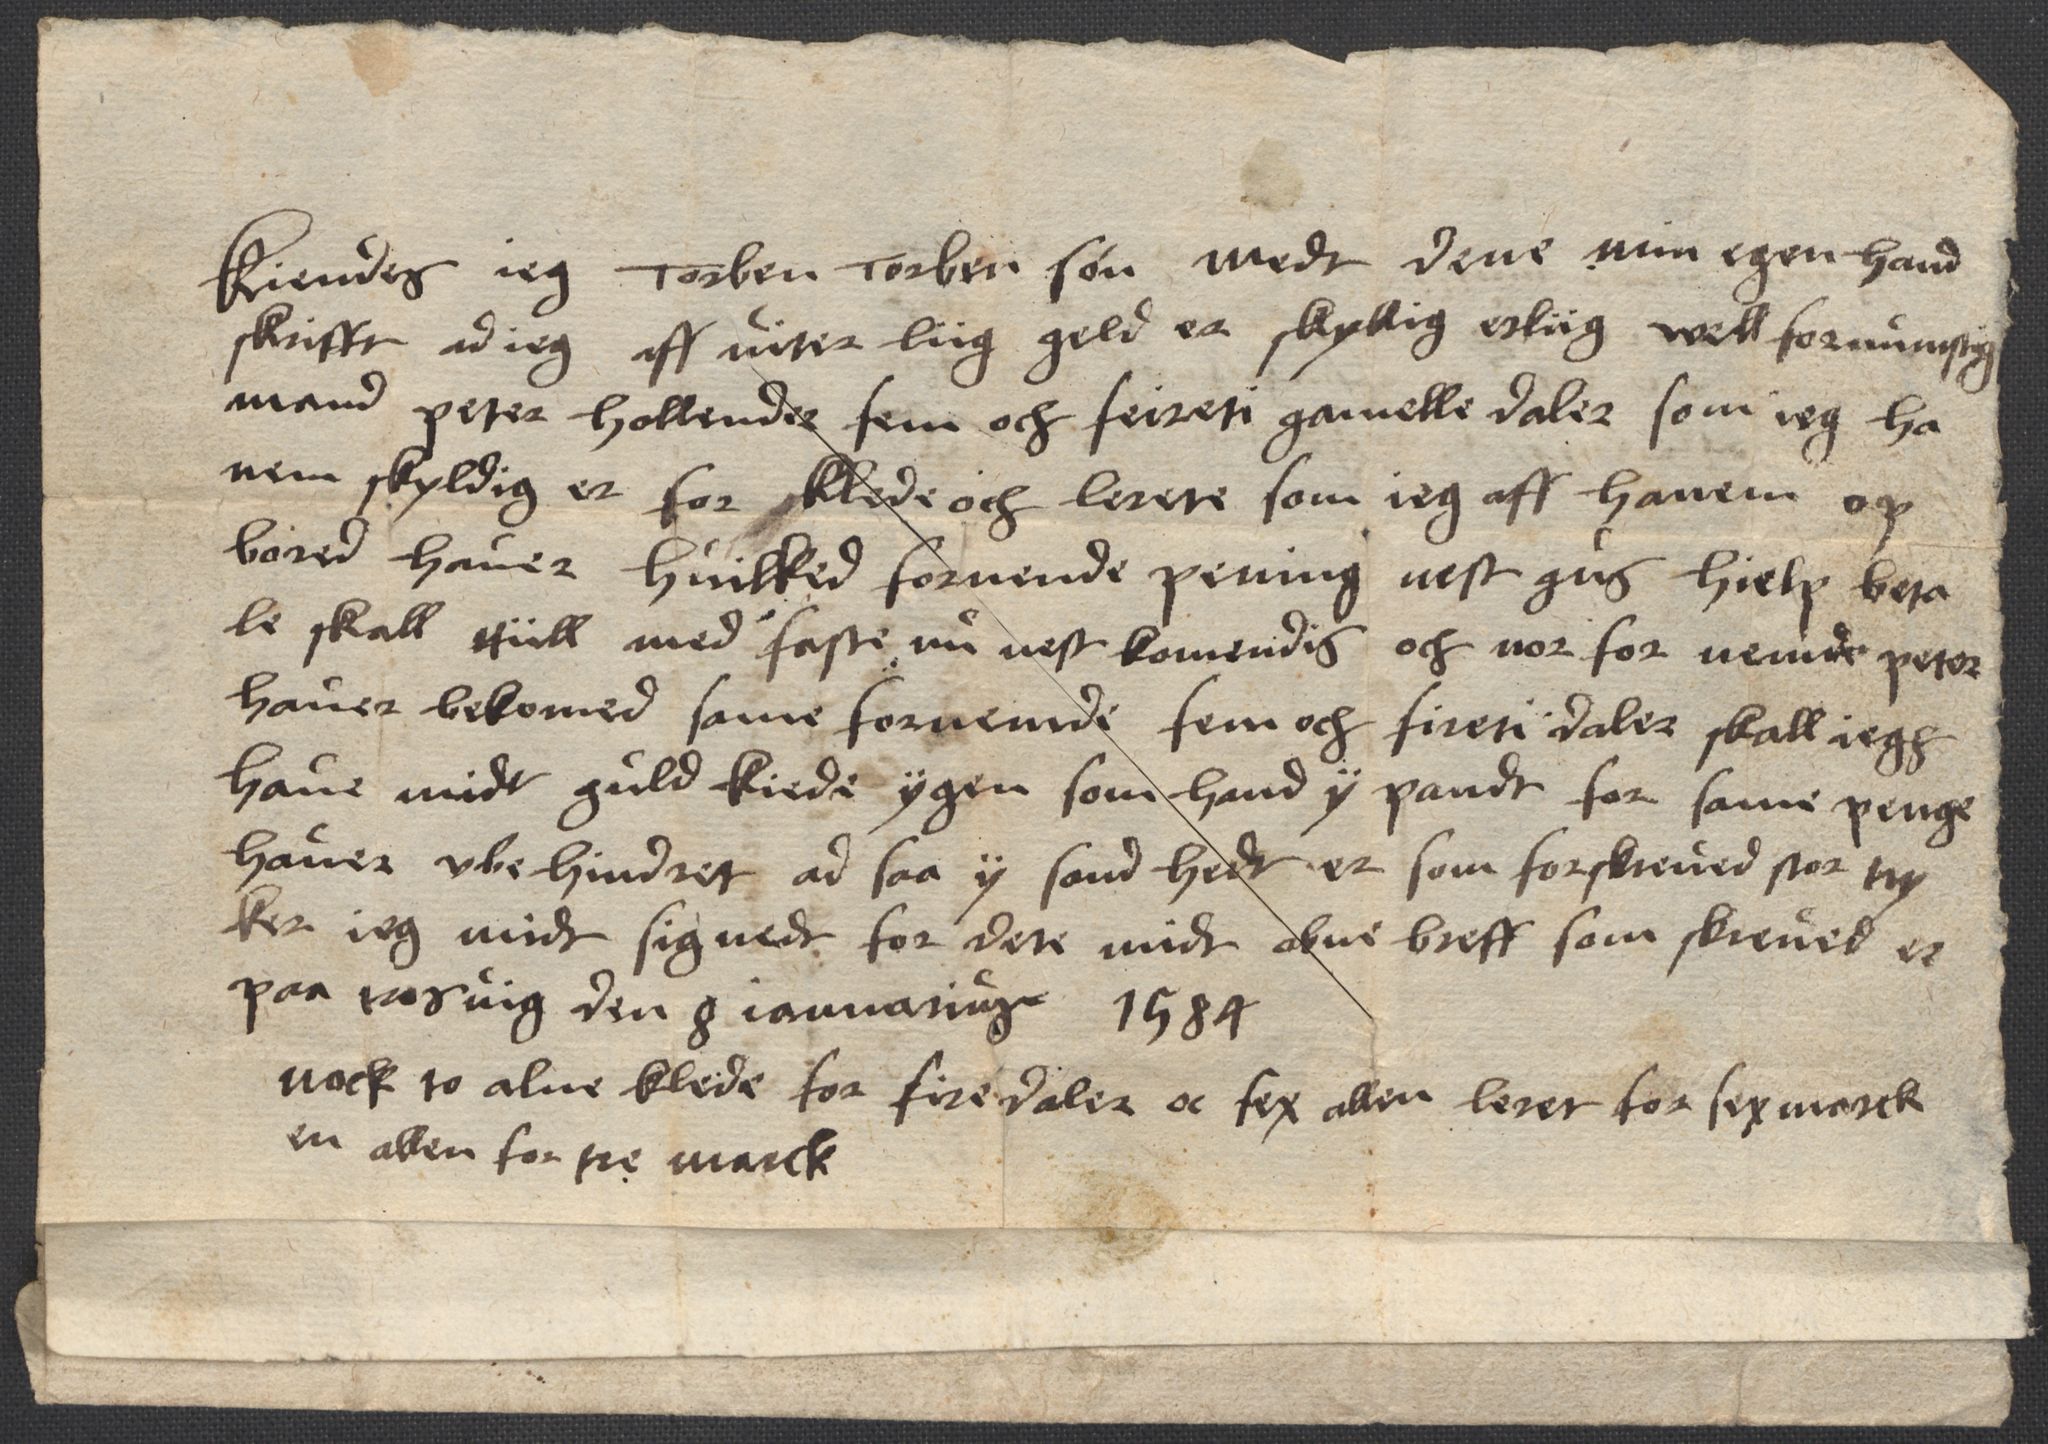 Kiendes ieg Torben Torben søn medt dene min egen hand
skrifft ad ieg aff uiter liig geld er skyllig erliig well fornumstig
mand peter hollender fem och feireti gamelle daler som ieg ha
nem skyldig er for klede och lerete som ieg aff hanem op
bored hauer huilked fornende pening nest gus hielp beta
le skall tiill med faste nu nest komendis och nor for nemde peter
hauer bekomed same fornemde fem och fireti daler skall iegh
haue midt guld kiede ygen som hand y pandt for same penge
hauer vbe hindret ad saa y sand hedt er som forskreued stor try
ker ieg midt signedt for dete midt abne breff som skreued er
paa trosuig den 8 iannarius 1584
nock to alne klede for fire daler oc sex allen leret for sex marck
en allen for tre marck